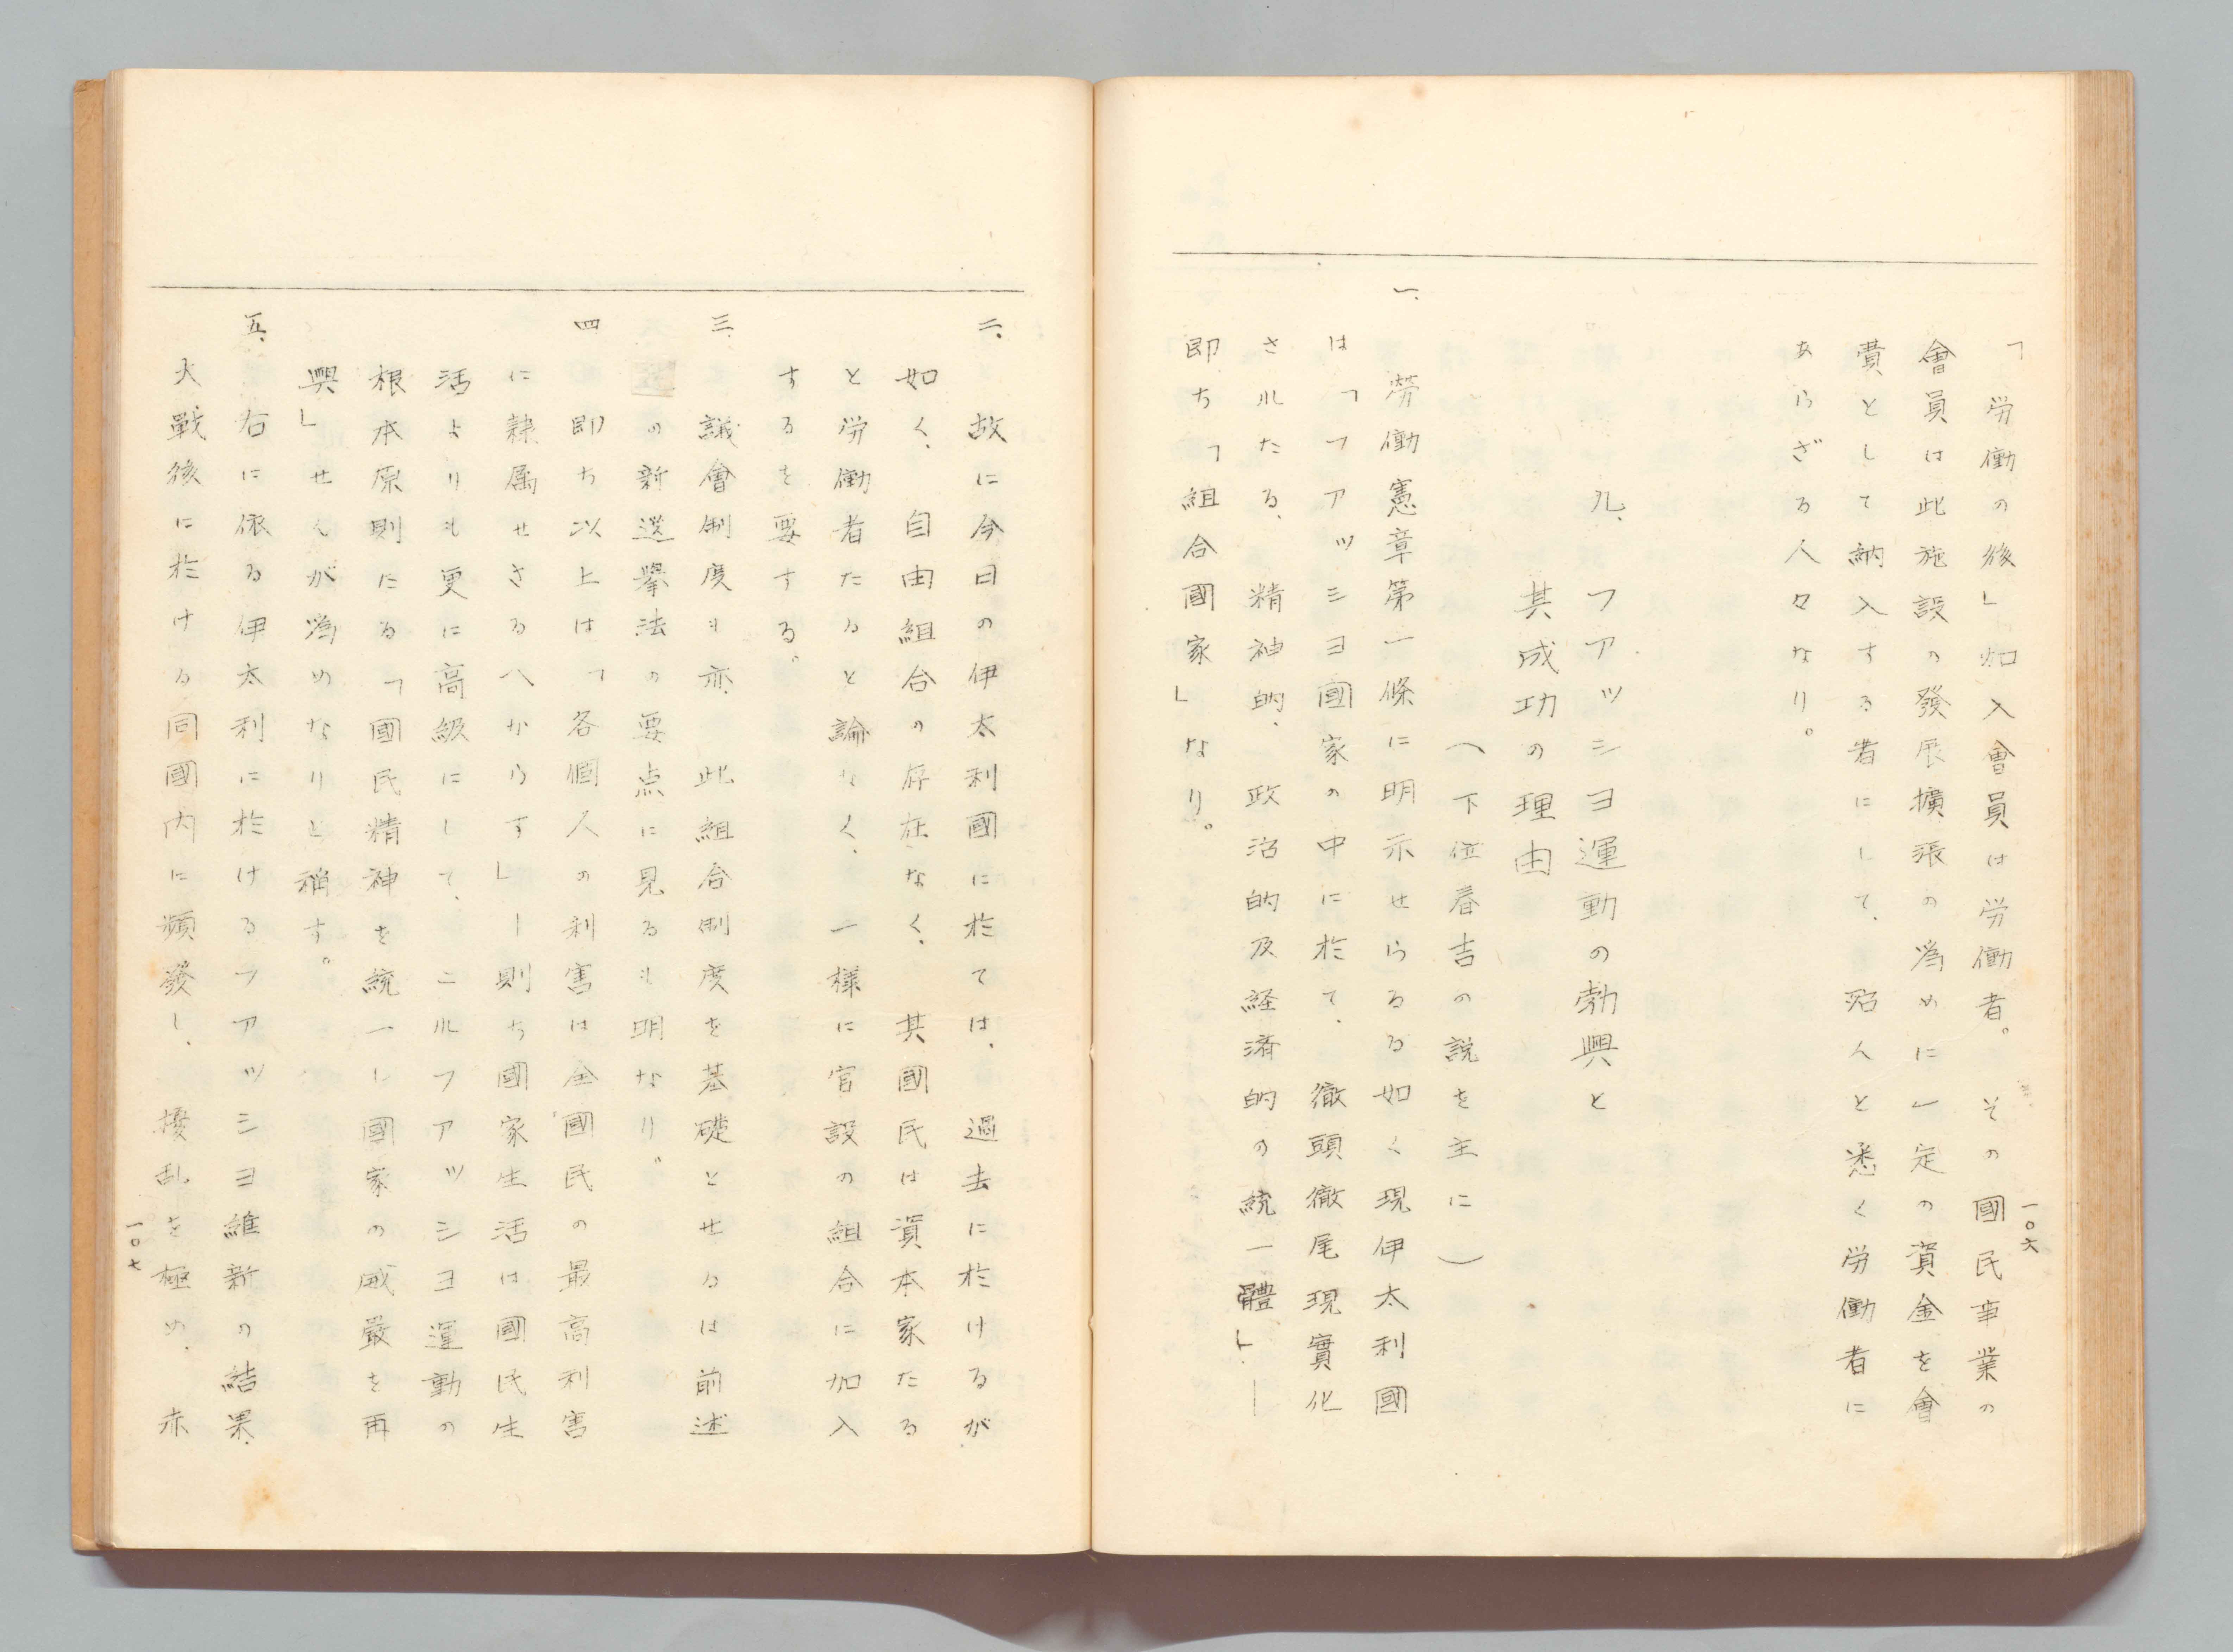 一〇六
「労働の後」加入會員は労働者。その國民事業の
會員は此施設の發展擴張の為めに一定の資金を會
費として納入する者にして、殆んと悉く労働者に
あらざる人々なり。
九、フアツシヨ運動の勃興と
其成功の理由
(下位春吉の説を主に)
一、労働憲章第一條に明示せらるる如く現伊太利國
は「フアツシヨ國家の中に於て、徹頭徹尾現實化
されたる、精神的、政治的及経済的の統一體」―
即ち「組合國家」なり。
二、故に今日の伊太利國に於ては、過去に於けるが
如く、自由組合の存在なく、其國民は資本家たる
と労働者たると論なく、一様に官設の組合に加入
するを要する。
三、議會制度も亦、此組合制度を基礎とせるは前述
の新選擧法の要点に見るも明なり。
四 即ち以上は「各個人の利害は全國民の最高利害
に隷属せさるへからす」―則ち國家生活は國民生
活よりも更に高級にして、ニルフアツシヨ運動の
根本原則たる「國民精神を統一し國家の威厳を再
興」せんが為めなりと稱す。
五、右に依る伊太利に於けるフアツシヨ維新の結果、
大戰後に於ける同國内に頻發し、擾乱を極め、赤
一〇七